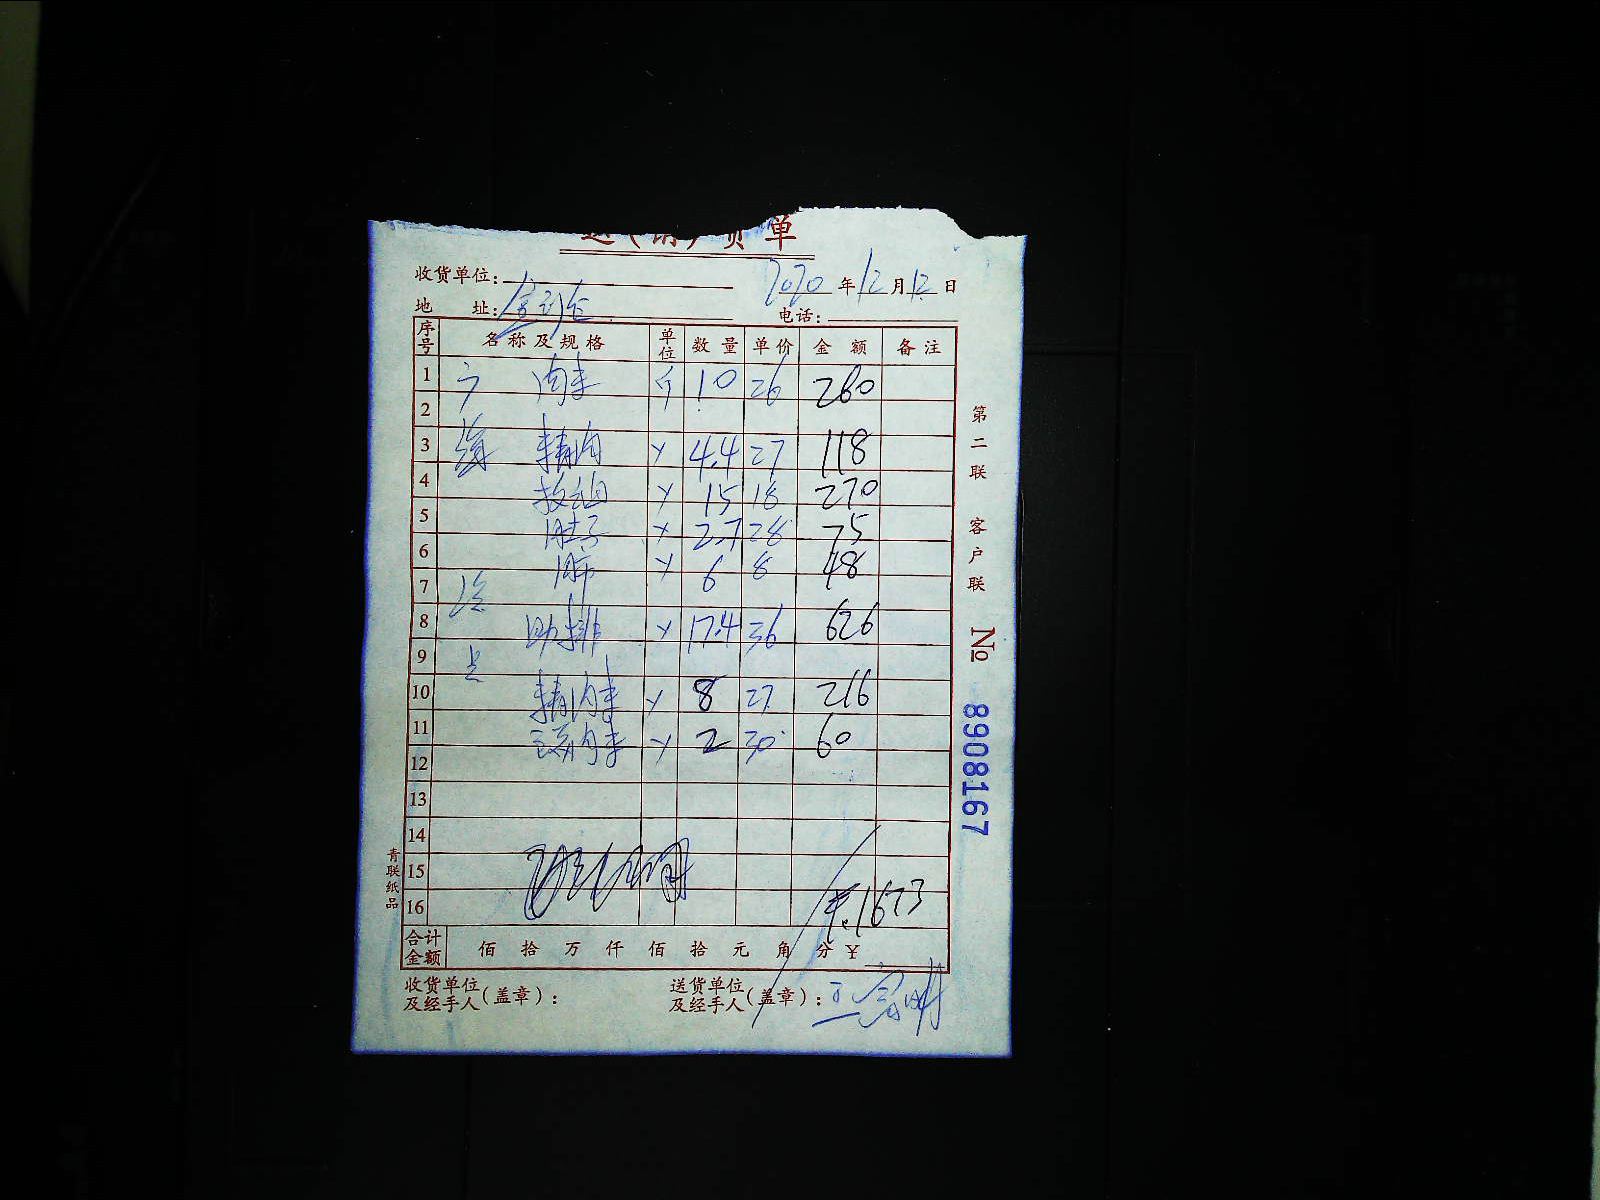 送(销)货单
收货单位:
2020年12月12日
地 址:
电话:
序号 名称及规格 单位 数量 单价 金额 备注
1 肉末 斤 10 26 260
2
3 精肉 〃 4.4 27 118
4 板油 〃 15 18 270
5 肚子 〃 2.7 28 75
6 肺 〃 6 8 48
7
8 肋排 〃 17.4 36 626
9
10 精肉末 〃 8 27 216
11 肉末 〃 2 30 60
12
13
14
15
16 ¥:1673
合计金额 佰 拾 万 仟 佰 拾 元 角 分 ¥
收货单位及经手人(盖章):
送货单位及经手人(盖章):
第二联 客户联
№ 8908167
青联纸品